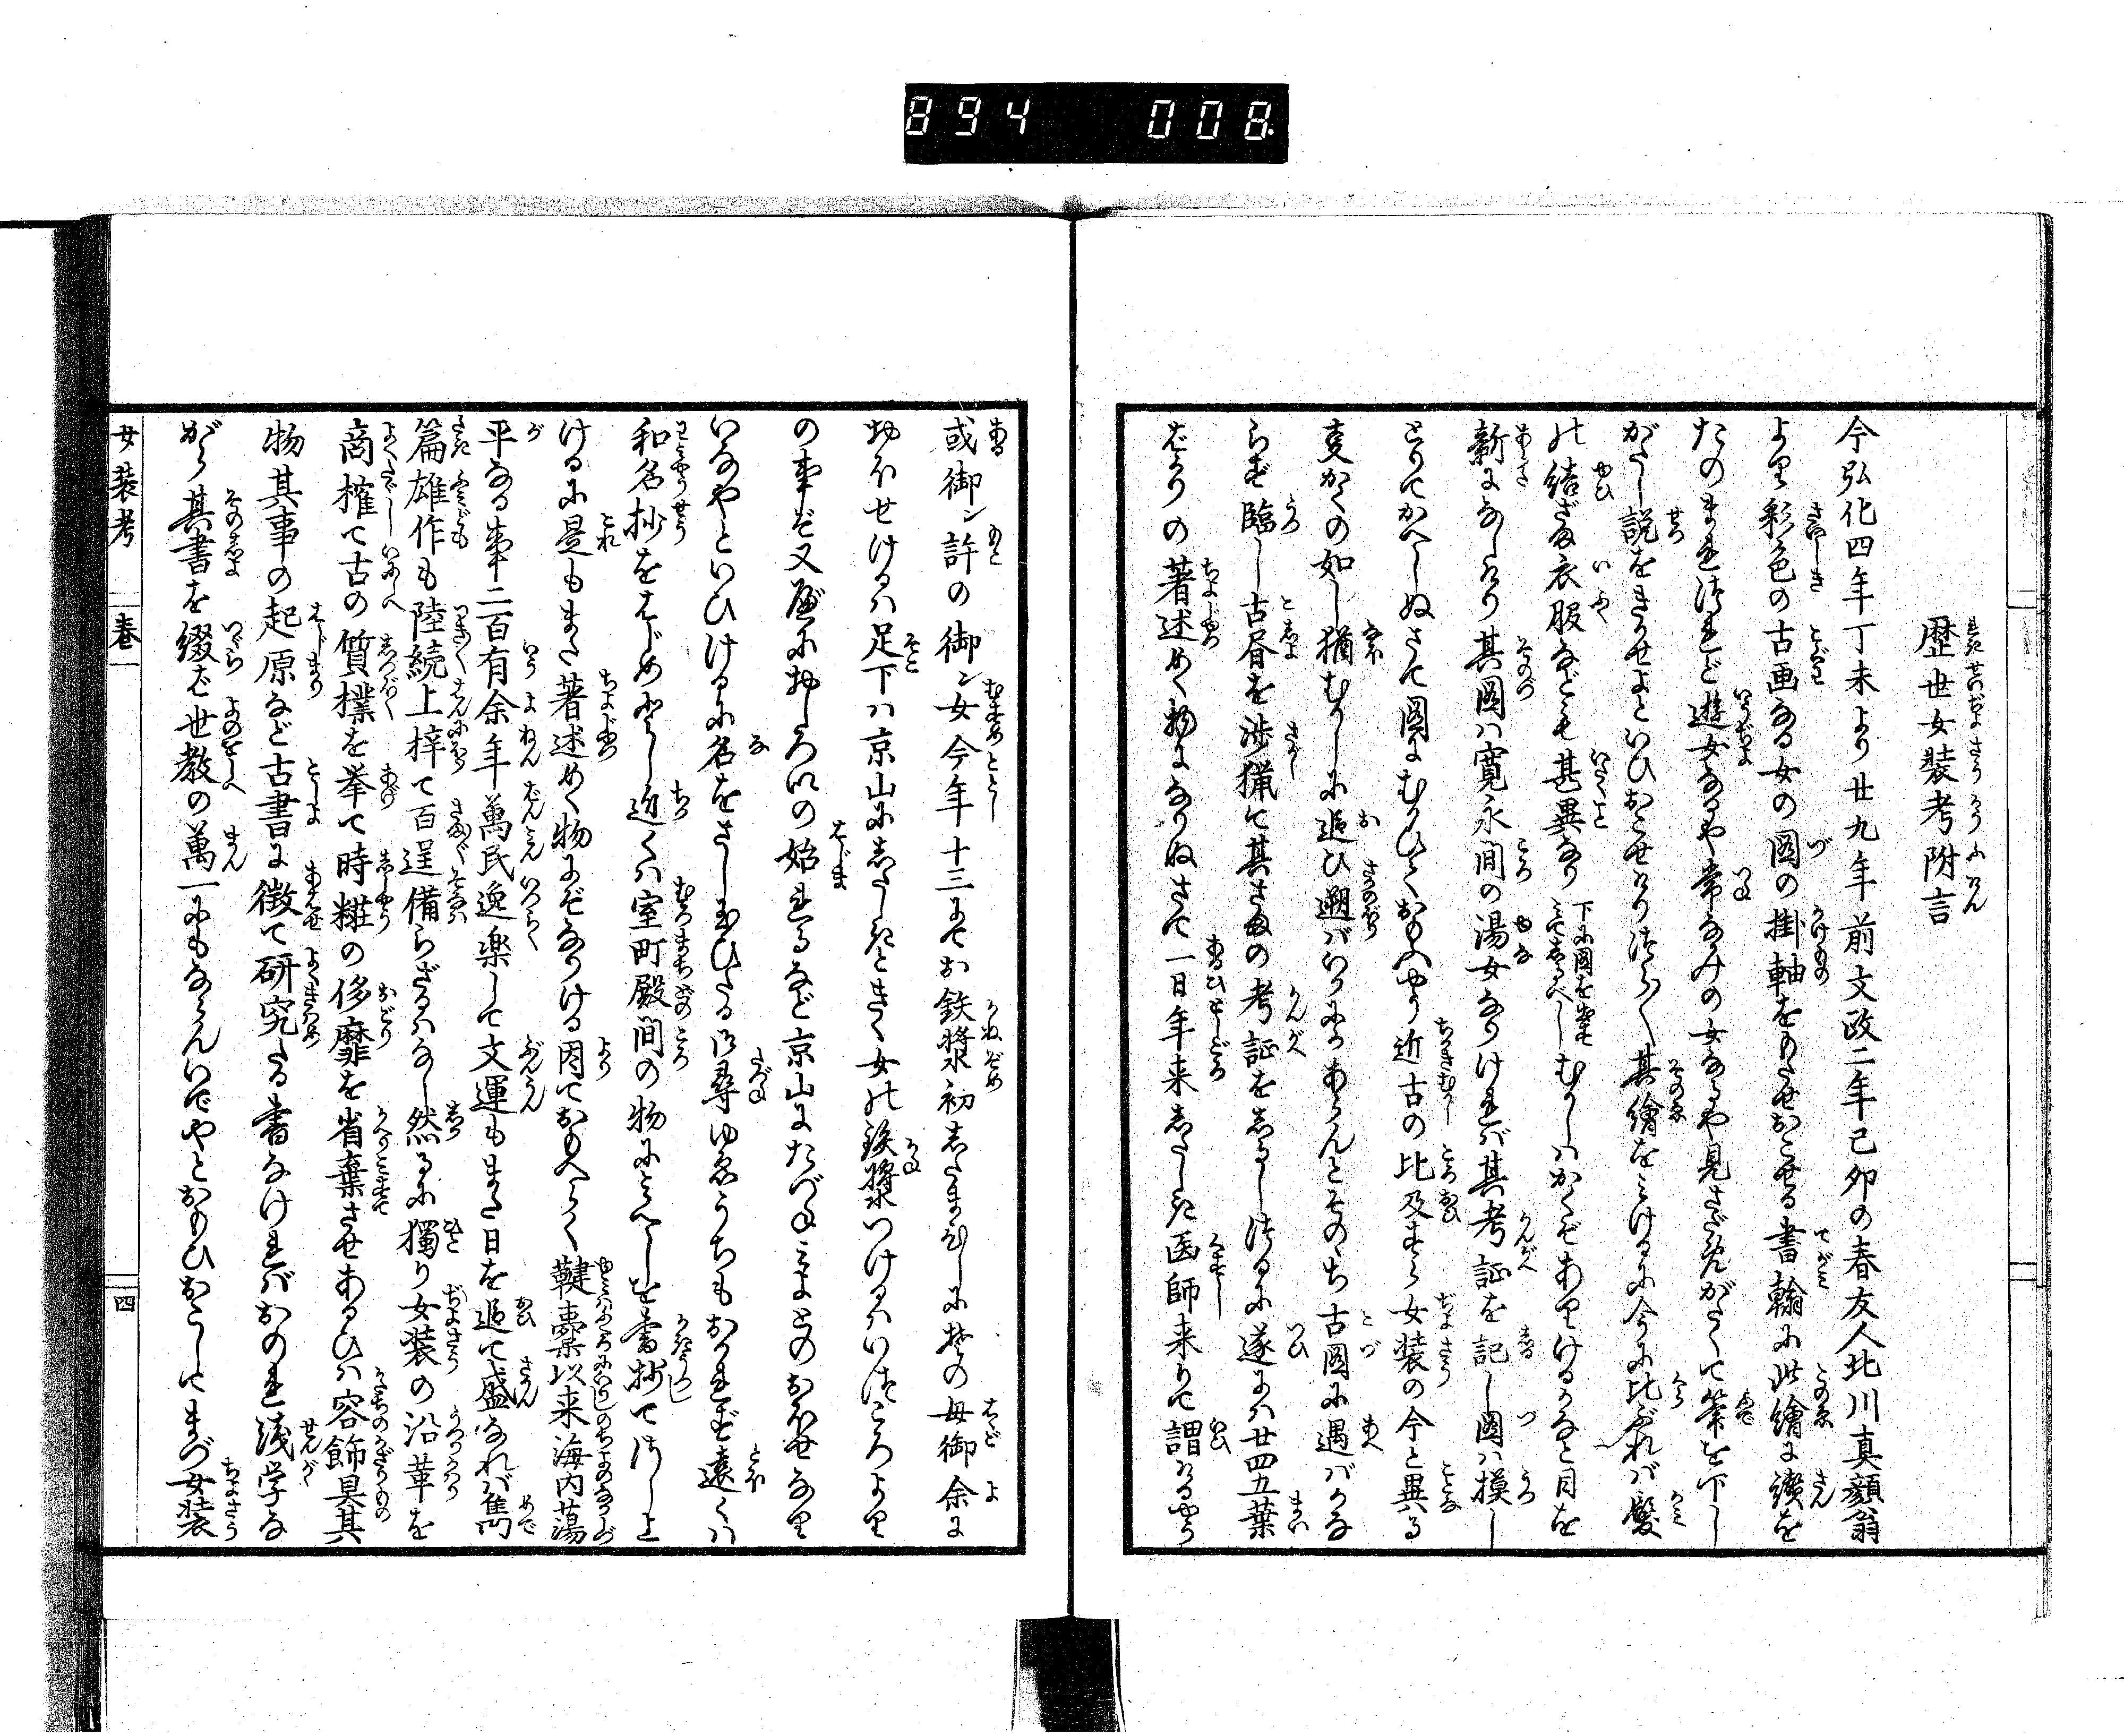 894 008
歴世女装考附言
今弘化四年丁未より廿九年前文政二年己卯の春友人北川真顔翁
より彩色の古画なる女の図の掛軸をもたせおこせる書翰に此繪に讃を
たのまれつれど遊女なるや常なみの女なるや見さだめがたくて筆を下し
がたし説をきかせよといひおこせけりつら〳〵其繪をみけるに今に比ぶれバ髪
の結ざま衣服なども甚異なり下に図を出せりみてしるべしむかしハかくぞありけるかなと目を
新になしけり其図ハ寛永間の湯女なりけれバ其考証を記し図ハ摸し
とりてかへしぬさて図にむかひておもふやう近古の比及すら女装の今と異る
事かくの如し猶むかしに追ひ遡バいかにかあらんとそのち古図に遇バかな
らず臨し古昔を渉猟て其さまの考証をしるしつるに遂にハ廿四五葉
ばかりの著述めく物になりぬさて一日年来したしき医師来りて謂けるやう
或御ン許の御ン女今年十三にてお鉄漿初したまひしに其の母御余に
おほせけるハ足下ハ京山にしたしときく女の鉄漿つけるハいつころより
の事ぞ又顔におしろいの始れるなど京山にたづねみよとのおほせなり
いなやといひけるに名をさし玉ひたる御尋ゆゑうちもおかれず遠くハ
和名抄をはじめとし近くハ室町殿間の物にみへしを書抄てつかし上
けるに是もまた著述めく物にぞなりける因ておもへらく鞬櫜以来海内蕩
平なる事二百有余年萬民逸楽して文運もまた日を追て盛なれバ雋
篇雄作も陸続上梓て百逞備らざるハなし然るに獨り女装の沿革を
商搉て古の質樸を挙て時粧の侈靡を省棄させあるひハ容飾具其
物其事の起原など古書に徴て研究たる書なけれバおのれ浅学な
がら其書を綴ば世教の萬一にもならんいでやとおもひおこしてまづ女装
女装考 巻一 四